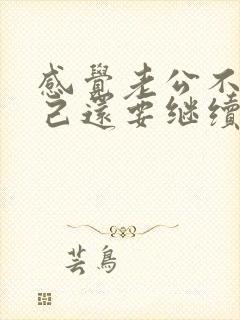 感覺老公不
已還要繼續
芸鳥